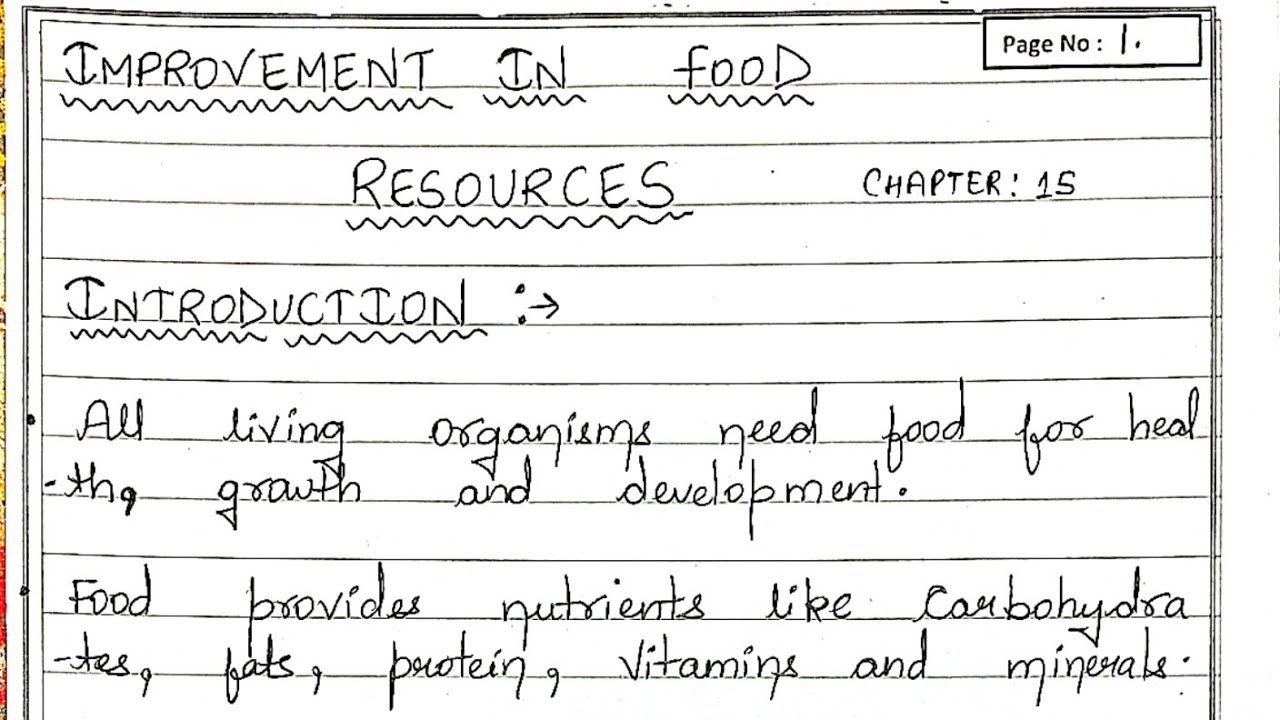 Page No : 1.
IMPROVEMENT IN FOOD
RESOURCES CHAPTER: 15
INTRODUCTION :→
• All living organisms need food for heal
-th, growth and development.
• Food provides nutrients like Carbohydra
-tes, fats, protein, Vitamins and minerals.